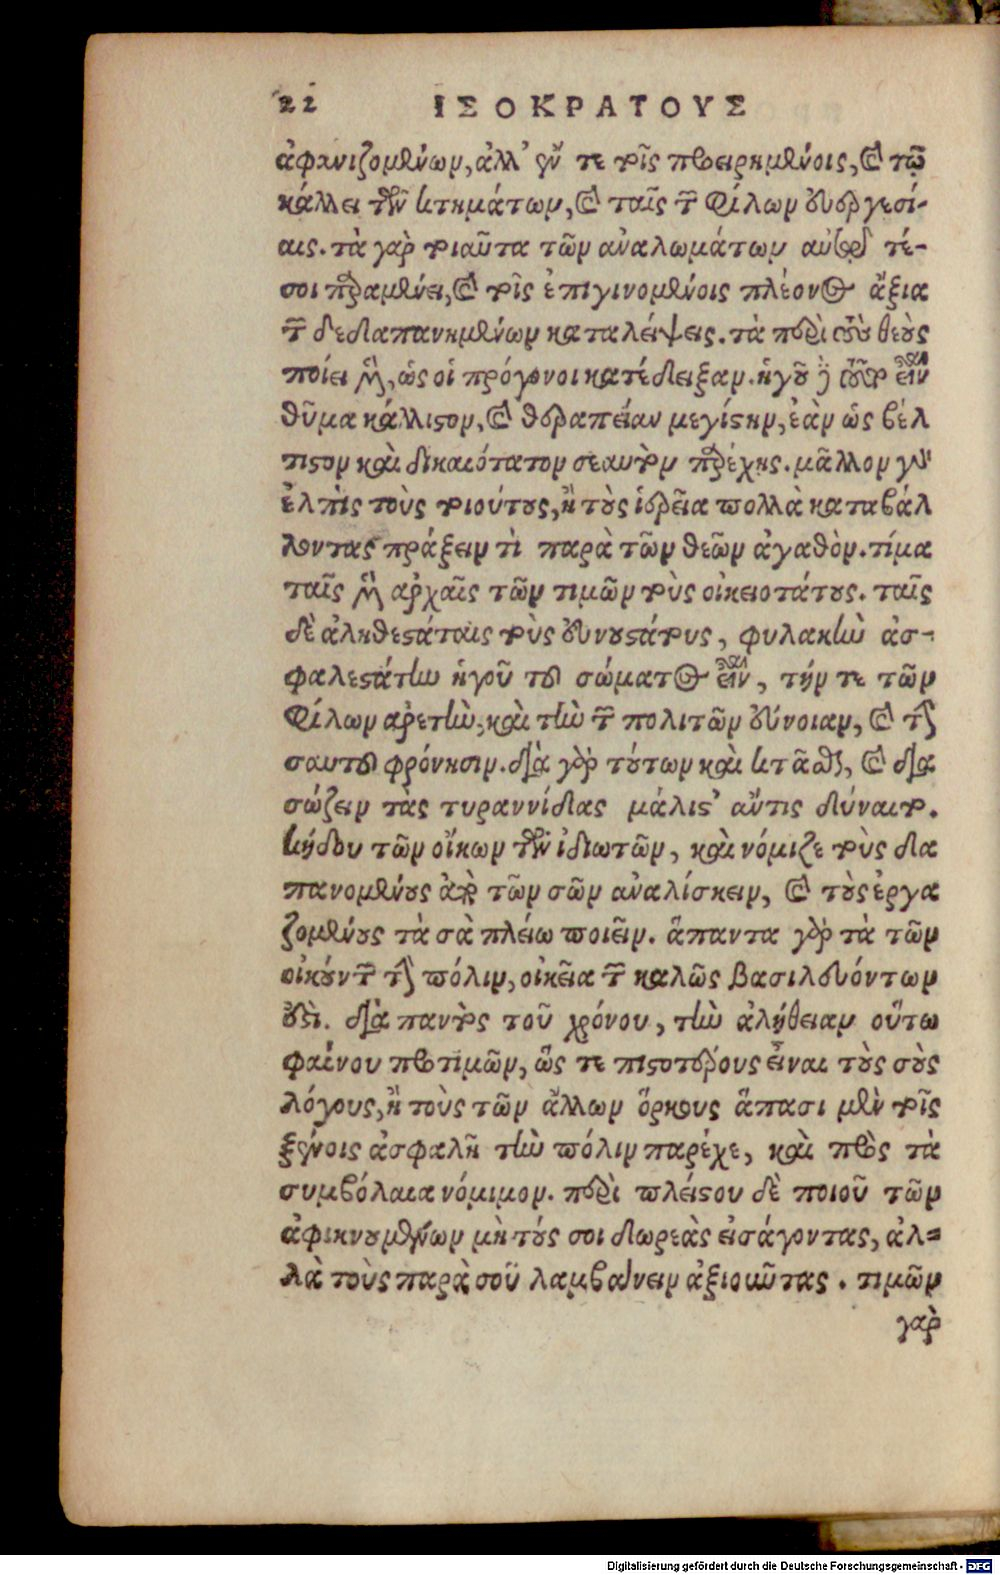 22 ΙΣΟΚΡΑΤΟΥΣ
ἀφανιζομένων, ἀλλ' ἔν τε τοῖς προειρημένοις, καὶ τῷ
κάλλει τῶν κτημάτων, καὶ ταῖς τῶν φίλων εὐεργεσί-
αις. τὰ γὰρ τοιαῦτα τῶν ἀναλωμάτων αὐτοῦ τέ-
σοι παραμένει, καὶ τοῖς ἐπιγινομένοις πλέονος ἄξια
τῶν δεδαπανημένων καταλείψεις. τὰ περὶ τοὺς θεοὺς
ποίει μὲν, ὡς οἱ πρόγονοι κατέδειξαν. ἡγοῦ δὲ τοῦτο εἶναι
θῦμα κάλλιστον, καὶ θεραπείαν μεγίστην, ἐὰν ὡς βέλ
τιστον καὶ δικαιότατον σεαυτὸν παρέχης. μᾶλλον γὰρ
ἐλπὶς τοὺς τοιούτους, ἢ τοὺς ἱερεῖα πολλὰ καταβάλ
λοντας πράξειν τὶ παρὰ τῶν θεῶν ἀγαθόν. τίμα
ταῖς μὲν ἀρχαῖς τῶν τιμῶν τοὺς οἰκειοτάτους. ταῖς
δὲ ἀληθεστάταις τοὺς εὐνουστάτους, φυλακὴν ἀσ-
φαλεστάτην ἡγοῦ τοῦ σώματος εἶναι, τήν τε τῶν
φίλων ἀρετὴν, καὶ τὴν τῶν πολιτῶν εὔνοιαν, καὶ τὴν
σαυτοῦ φρόνησιν. διὰ γὰρ τούτων καὶ κτᾶσθαι, καὶ δια
σώζειν τὰς τυραννίδας μάλιστ' ἄν τις δύναιτο.
κήδου τῶν οἴκων τῶν ἰδιωτῶν, καὶ νόμιζε τοὺς δα
πανομένους ἀπὸ τῶν σῶν ἀναλίσκειν, καὶ τοὺς ἐργα
ζομένους τὰ σὰ πλείω ποιεῖν. ἅπαντα γὰρ τὰ τῶν
οἰκούντων τὴν πόλιν, οἰκεῖα τῶν καλῶς βασιλευόντων
ἐστί. διὰ παντὸς τοῦ χρόνου, τὴν ἀλήθειαν οὕτω
φαίνου προτιμῶν, ὥς τε πιστοτέρους εἶναι τοὺς σοὺς
λόγους, ἢ τοὺς τῶν ἄλλων ὅρκους ἅπασι μὲν τοῖς
ξένοις ἀσφαλῆ τὴν πόλιν παρέχε, καὶ πρὸς τὰ
συμβόλαια νόμιμον. περὶ πλείστου δὲ ποιοῦ τῶν
ἀφικνουμένων μὴ τούς σοι δωρεὰς εἰσάγοντας, ἀλ-
λὰ τοὺς παρὰ σοῦ λαμβάνειν ἀξιοῦντας. τιμῶν
γὰρ
Digitalisierung gefördert durch die Deutsche Forschungsgemeinschaft - DFG